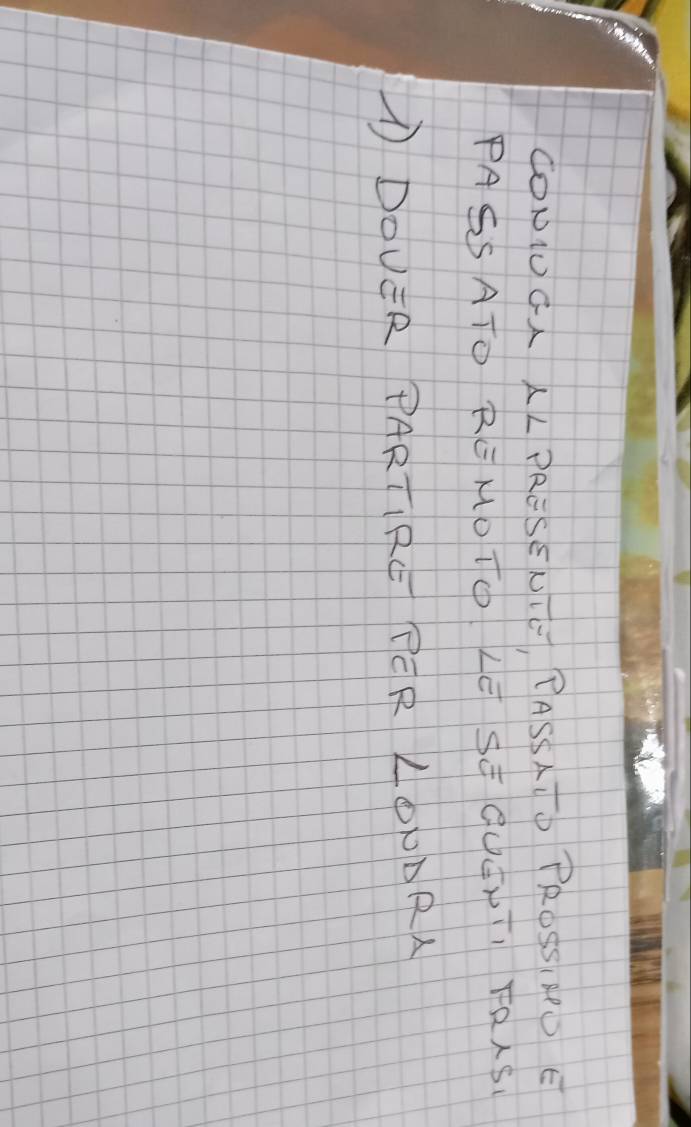 CONIUGA AL PRESENTE, PASSATO PROSSIMO E
PASSATO REMOTO LE SEGUENTI FRASI
1) DOVER PARTIRE PER LONDRA